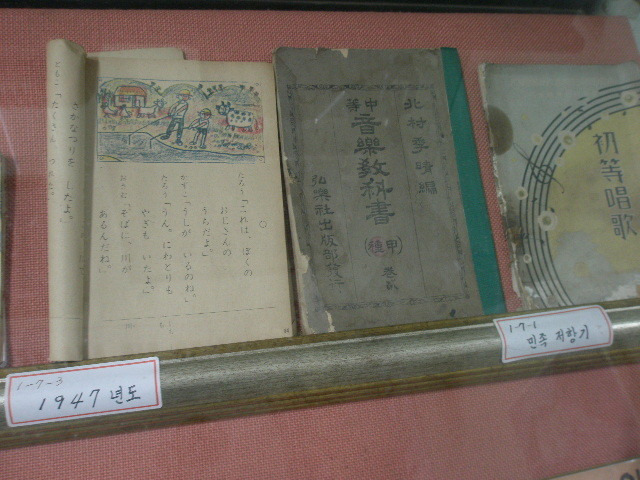 ○
たろう「これは、ぼくの
おじさんの
うちだよ。」
かずこ「うしが いるのね。」
たろう「うん。にわとりも
やぎも いたよ。」
おさむ「そばに、川が
あるんだね。」
さかなつりを したよ。
北村季晴編
中等
音樂教科書
甲種
弘樂社出版部
初等唱歌
1-7-3
1947 년도
1-7-1
민족 저항기